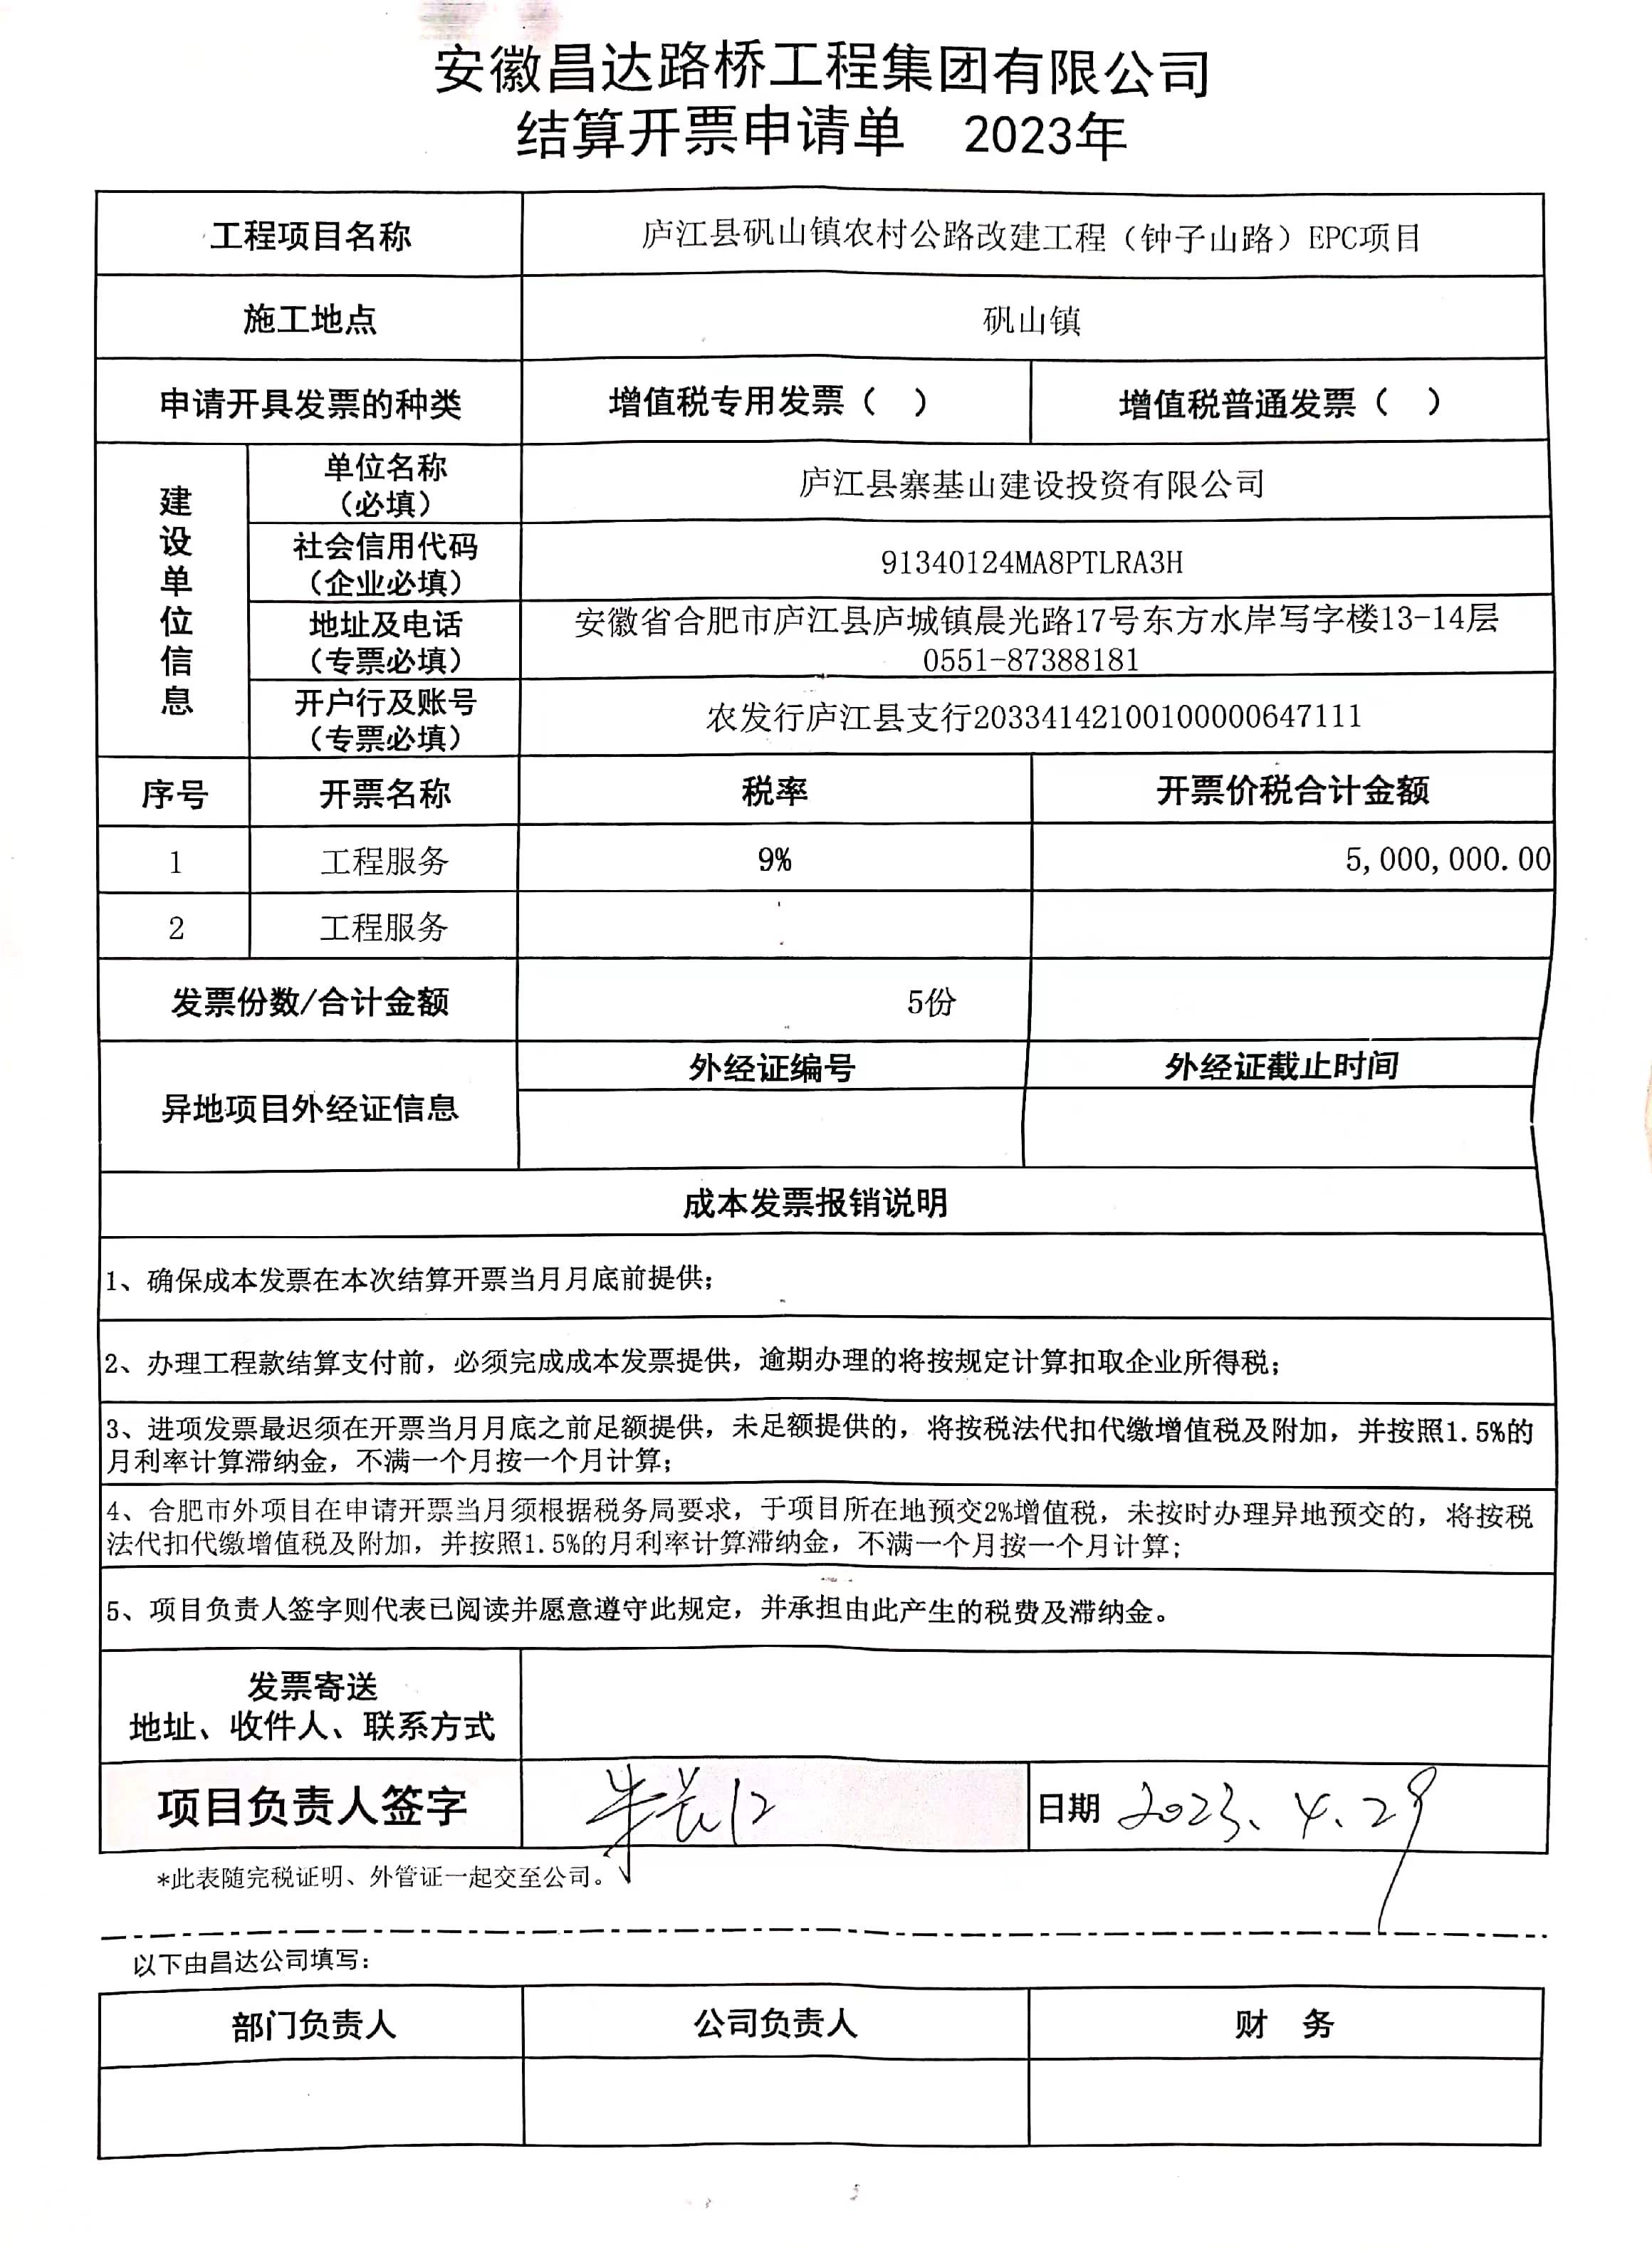 安徽昌达路桥工程集团有限公司
结算开票申请单 2023年
工程项目名称 庐江县矾山镇农村公路改建工程（钟子山路）EPC项目
施工地点 矾山镇
申请开具发票的种类 增值税专用发票（ ） 增值税普通发票（ ）
建设单位信息
单位名称
（必填）
庐江县寨基山建设投资有限公司
社会信用代码
（企业必填）
91340124MA8PTLRA3H
地址及电话
（专票必填）
安徽省合肥市庐江县庐城镇晨光路17号东方水岸写字楼13-14层
0551-87388181
开户行及账号
（专票必填）
农发行庐江县支行20334142100100000647111
序号 开票名称 税率 开票价税合计金额
1 工程服务 9% 5,000,000.00
2 工程服务
发票份数/合计金额 5份
异地项目外经证信息 外经证编号 外经证截止时间
成本发票报销说明
1、确保成本发票在本次结算开票当月月底前提供；
2、办理工程款结算支付前，必须完成成本发票提供，逾期办理的将按规定计算扣取企业所得税；
3、进项发票最迟须在开票当月月底之前足额提供，未足额提供的，将按税法代扣代缴增值税及附加，并按照1.5%的
月利率计算滞纳金，不满一个月按一个月计算；
4、合肥市外项目在申请开票当月须根据税务局要求，于项目所在地预交2%增值税，未按时办理异地预交的，将按税
法代扣代缴增值税及附加，并按照1.5%的月利率计算滞纳金，不满一个月按一个月计算；
5、项目负责人签字则代表已阅读并愿意遵守此规定，并承担由此产生的税费及滞纳金。
发票寄送
地址、收件人、联系方式
项目负责人签字 日期 2023、4、29
*此表随完税证明、外管证一起交至公司。
以下由昌达公司填写：
部门负责人 公司负责人 财 务